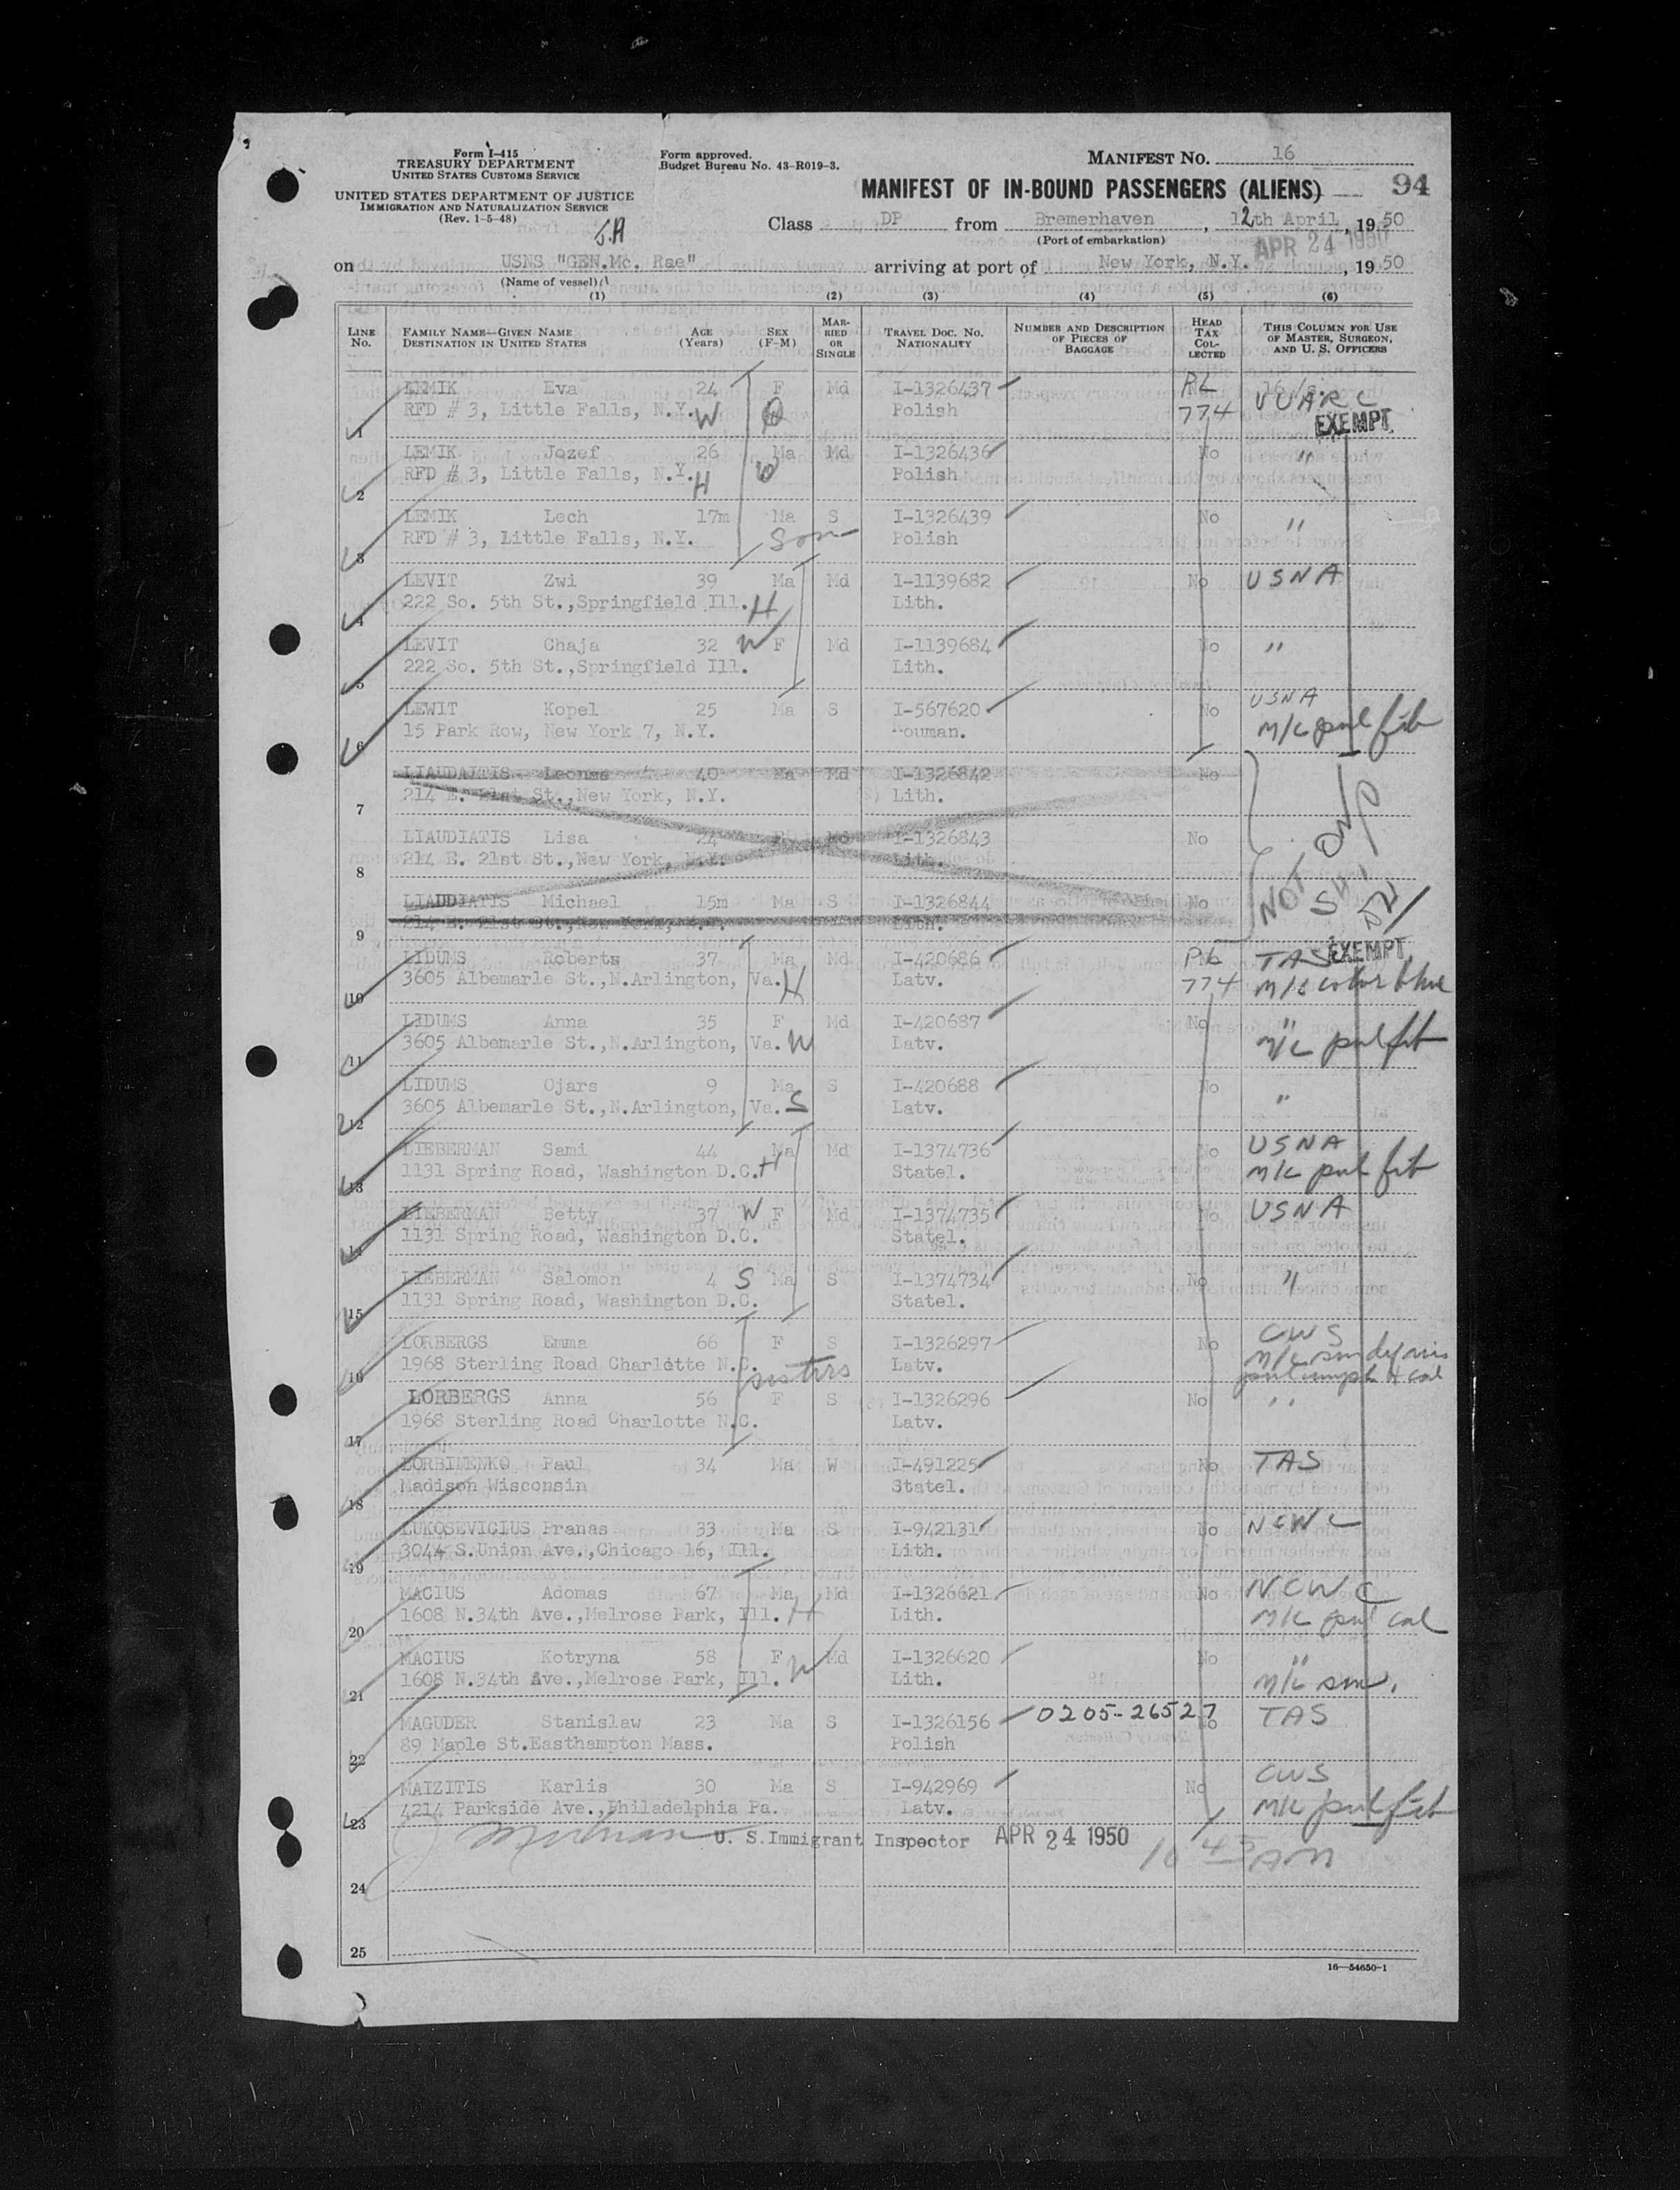 Form I-415
TREASURY DEPARTMENT
UNITED STATES CUSTOMS SERVICE
UNITED STATES DEPARTMENT OF JUSTICE
IMMIGRATION AND NATURALIZATION SERVICE
(Rev. 1-5-48)
Form approved.
Budget Bureau No. 43-R019-3.
MANIFEST No. 16
MANIFEST OF IN-BOUND PASSENGERS (ALIENS) 94
Class DP from Bremerhaven, 12th April, 1950
(Port of embarkation)
APR 24 1950
on USNS "GEN.Mc. Rae" arriving at port of New York, N.Y. , 1950
(Name of vessel)
(1) (2) (3) (4) (5) (6)
LINE No. FAMILY NAME—GIVEN NAME DESTINATION IN UNITED STATES AGE (Years) SEX (F-M) MARRIED OR SINGLE TRAVEL DOC. No. NATIONALITY NUMBER AND DESCRIPTION OF PIECES OF BAGGAGE HEAD TAX COLLECTED THIS COLUMN FOR USE OF MASTER, SURGEON, AND U. S. OFFICERS
LEMIK Eva 24 F Md I-1326437 PL
RFD # 3, Little Falls, N.Y. W Polish 774 UUARC
1 EXEMPT
LEMIK Jozef 26 Ma Md I-1326436 No "
RFD # 3, Little Falls, N.Y. H Polish
2
LEMIK Lech 17m Ma S I-1326439 No "
RFD # 3, Little Falls, N.Y. Son Polish
3
LEVIT Zwi 39 Ma Md I-1139682 No USNA
222 So. 5th St.,Springfield Ill. H Lith.
4
LEVIT Chaja 32 W F Md I-1139684 No "
222 So. 5th St.,Springfield Ill. Lith.
5
LEWIT Kopel 25 Ma S I-567620 No USNA
15 Park Row, New York 7, N.Y. Rouman. M/C pul fib
6
LIAUDAITIS Leonas 40 Ma Md I-1326842 No
214 E. 21st St.,New York, N.Y. Lith.
7
LIAUDIATIS Lisa 24 F Md I-1326843 No
214 E. 21st St.,New York, N.Y. Lith.
8 NOT ON SHIP
LIAUDIATIS Michael 15m Ma S I-1326844 No
214 E. 21st St.,New York, N.Y. Lith.
9 EXEMPT
LIDUMS Roberts 37 Ma Md I-420686 PL TAS
3605 Albemarle St.,N.Arlington, Va. H Latv. 774 M/C color blue
10
LIDUMS Anna 35 F Md I-420687 No "
3605 Albemarle St.,N.Arlington, Va. W Latv. M/C pul fib
11
LIDUMS Ojars 9 Ma S I-420688 No
3605 Albemarle St.,N.Arlington, Va. S Latv. "
12
LIEBERMAN Sami 44 Ma Md I-1374736 No USNA
1131 Spring Road, Washington D.C. H Statel. M/C pul fib
13
LIEBERMAN Betty 37 W F Md I-1374735 No USNA
1131 Spring Road, Washington D.C. Statel.
14
LIEBERMAN Salomon 4 S Ma S I-1374734 No "
1131 Spring Road, Washington D.C. Statel.
15
LORBERGS Emma 66 F S I-1326297 No CWS
1968 Sterling Road Charlotte N.C. sisters Latv.
16
LORBERGS Anna 56 F S I-1326296 No "
1968 Sterling Road Charlotte N.C. Latv.
17
LORBINENKO Paul 34 Ma W I-491225 No TAS
Madison Wisconsin Statel.
18
LUKOSEVICIUS Pranas 33 Ma S I-942131 No NCWC
3044 S.Union Ave.,Chicago 16, Ill. Lith.
19
MACIUS Adomas 67 Ma Md I-1326621 No NCWC
1608 N.34th Ave.,Melrose Park, Ill. H Lith. M/C pul cal
20
MACIUS Kotryna 58 F W Md I-1326620 No "
1608 N.34th Ave.,Melrose Park, Ill. Lith. M/C sen.
21
MAGUDER Stanislaw 23 Ma S I-1326156 0205-26527 No TAS
89 Maple St.Easthampton Mass. Polish
22
MAIZITIS Karlis 30 Ma S I-942969 No CWS
4214 Parkside Ave.,Philadelphia Pa. Latv. M/C pul fib
23
U. S.Immigrant Inspector APR 24 1950 10 45 AM
24
25
16—54650-1